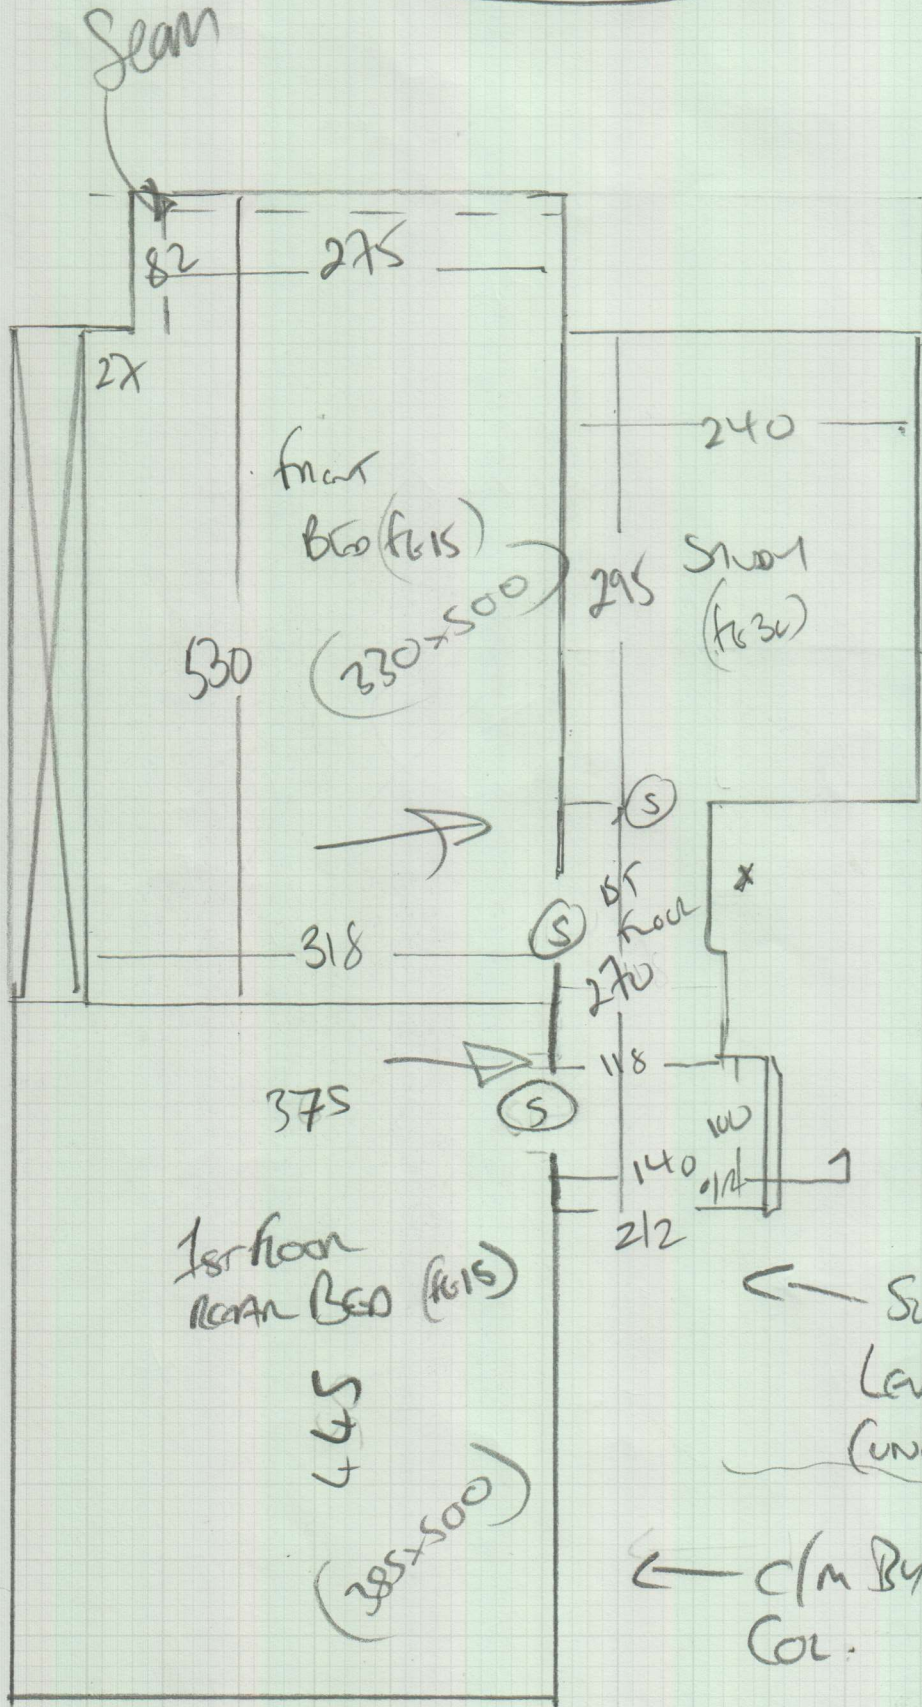 Seam
82
275
27
240
Front
BED (FE15)
(330×500)
295
Study
(FE30)
530
S
1ST
Floor
S
318
270
118
375
S
100
140
212
1
1st Floor
REAR BED (FE15)
445
(385×500)
C/M
COL.